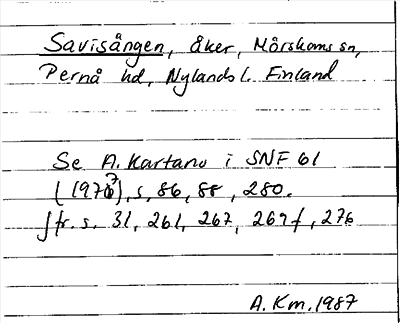 Savisången, åker, Mörskoms sn,
Pernå hd, Nylands l. Finland
Se A. Kartano i SNF 61
(1977), s, 86, 88, 280.
Jfr. s. 31, 261, 267, 269f, 276
A. Km. 1987